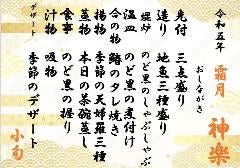 令和五年 霜月 神楽
おしながき
先付 三点盛り
造り 地魚三種盛り
焜炉 のど黒のしゃぶしゃぶ
温皿 のど黒の煮付け
合の物 鰤のタレ焼き
揚物 季節の天婦羅三種
蒸物 本日の茶碗蒸し
食事 のど黒の握り
汁物 吸物
デザート 季節のデザート